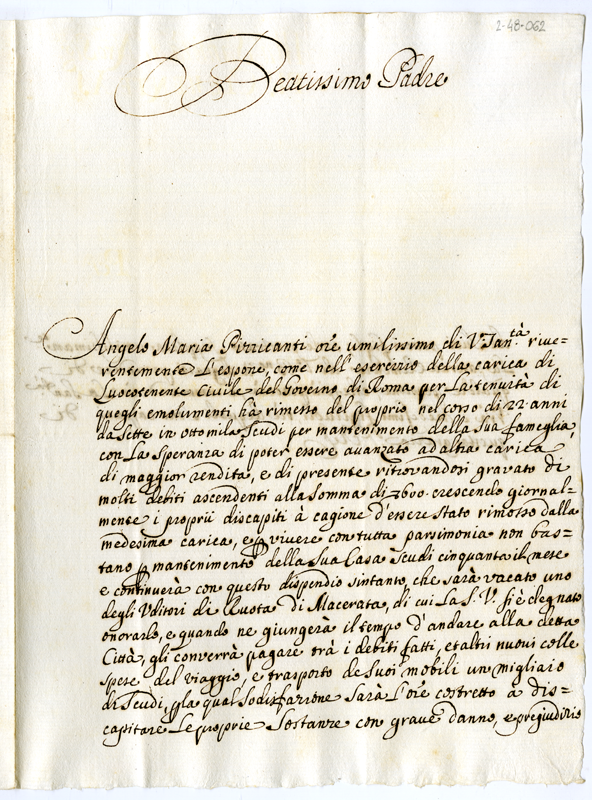 2-48-062
Beatissimo Padre
Angelo Maria Pizzicanti ore umilissimo di V. San.tà rive=
rentemente L'espone, come nell'esercizio della carica di
Luocotenente Civile del Governo di Roma per La tenuità di
quegli emolumenti hà rimesso del proprio nel corso di 22 anni
da sette in ottomila scudi per mantenimento della sua fameglia
con La speranza di poter essere avanzato ad altra carica
di maggior rendita, e di presente ritrovandosi gravato di
molti debiti ascendenti alla somma di 7600. crescendo giornal=
mente i proprii discapiti à cagione d'essere stato rimosso dalla
medesima carica, e vivere con tutta parsimonia non bas=
tano mantenimento della sua Casa scudi cinquanta il mese
e continuerà con questo dispendio sintanto, che sarà vacato uno
degli Uditori di Ruota di Macerata, di cui La S. V. si è degnata
onorarlo, e quando ne giungerà il tempo d'andare alla detta
Città, gli converrà pagare trà i debiti fatti, et altri nuovi colle
spese del viaggio, e trasporto de suoi mobili un migliaio
di scudi, la qual sodisfazzione sarà l'ore costretto à dis=
capitare Le proprie sostanze con grave danno, e pregiudizio